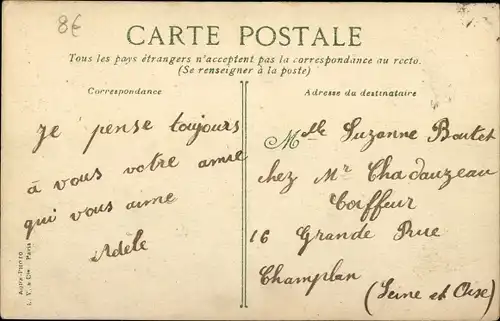 8€
CARTE POSTALE
Tous les pays étrangers n'acceptent pas la correspondance au recto.
(Se renseigner à la poste)
Correspondance
Je pense toujours
à vous votre amie
qui vous aime
Adèle
Adresse du destinataire
Melle Suzanne Boutet
chez Mr Chadauzeau
Coiffeur
16 Grande Rue
Champlan
(Seine et Oise)
AQUA-PHOTO
L. V. & Cie - Paris